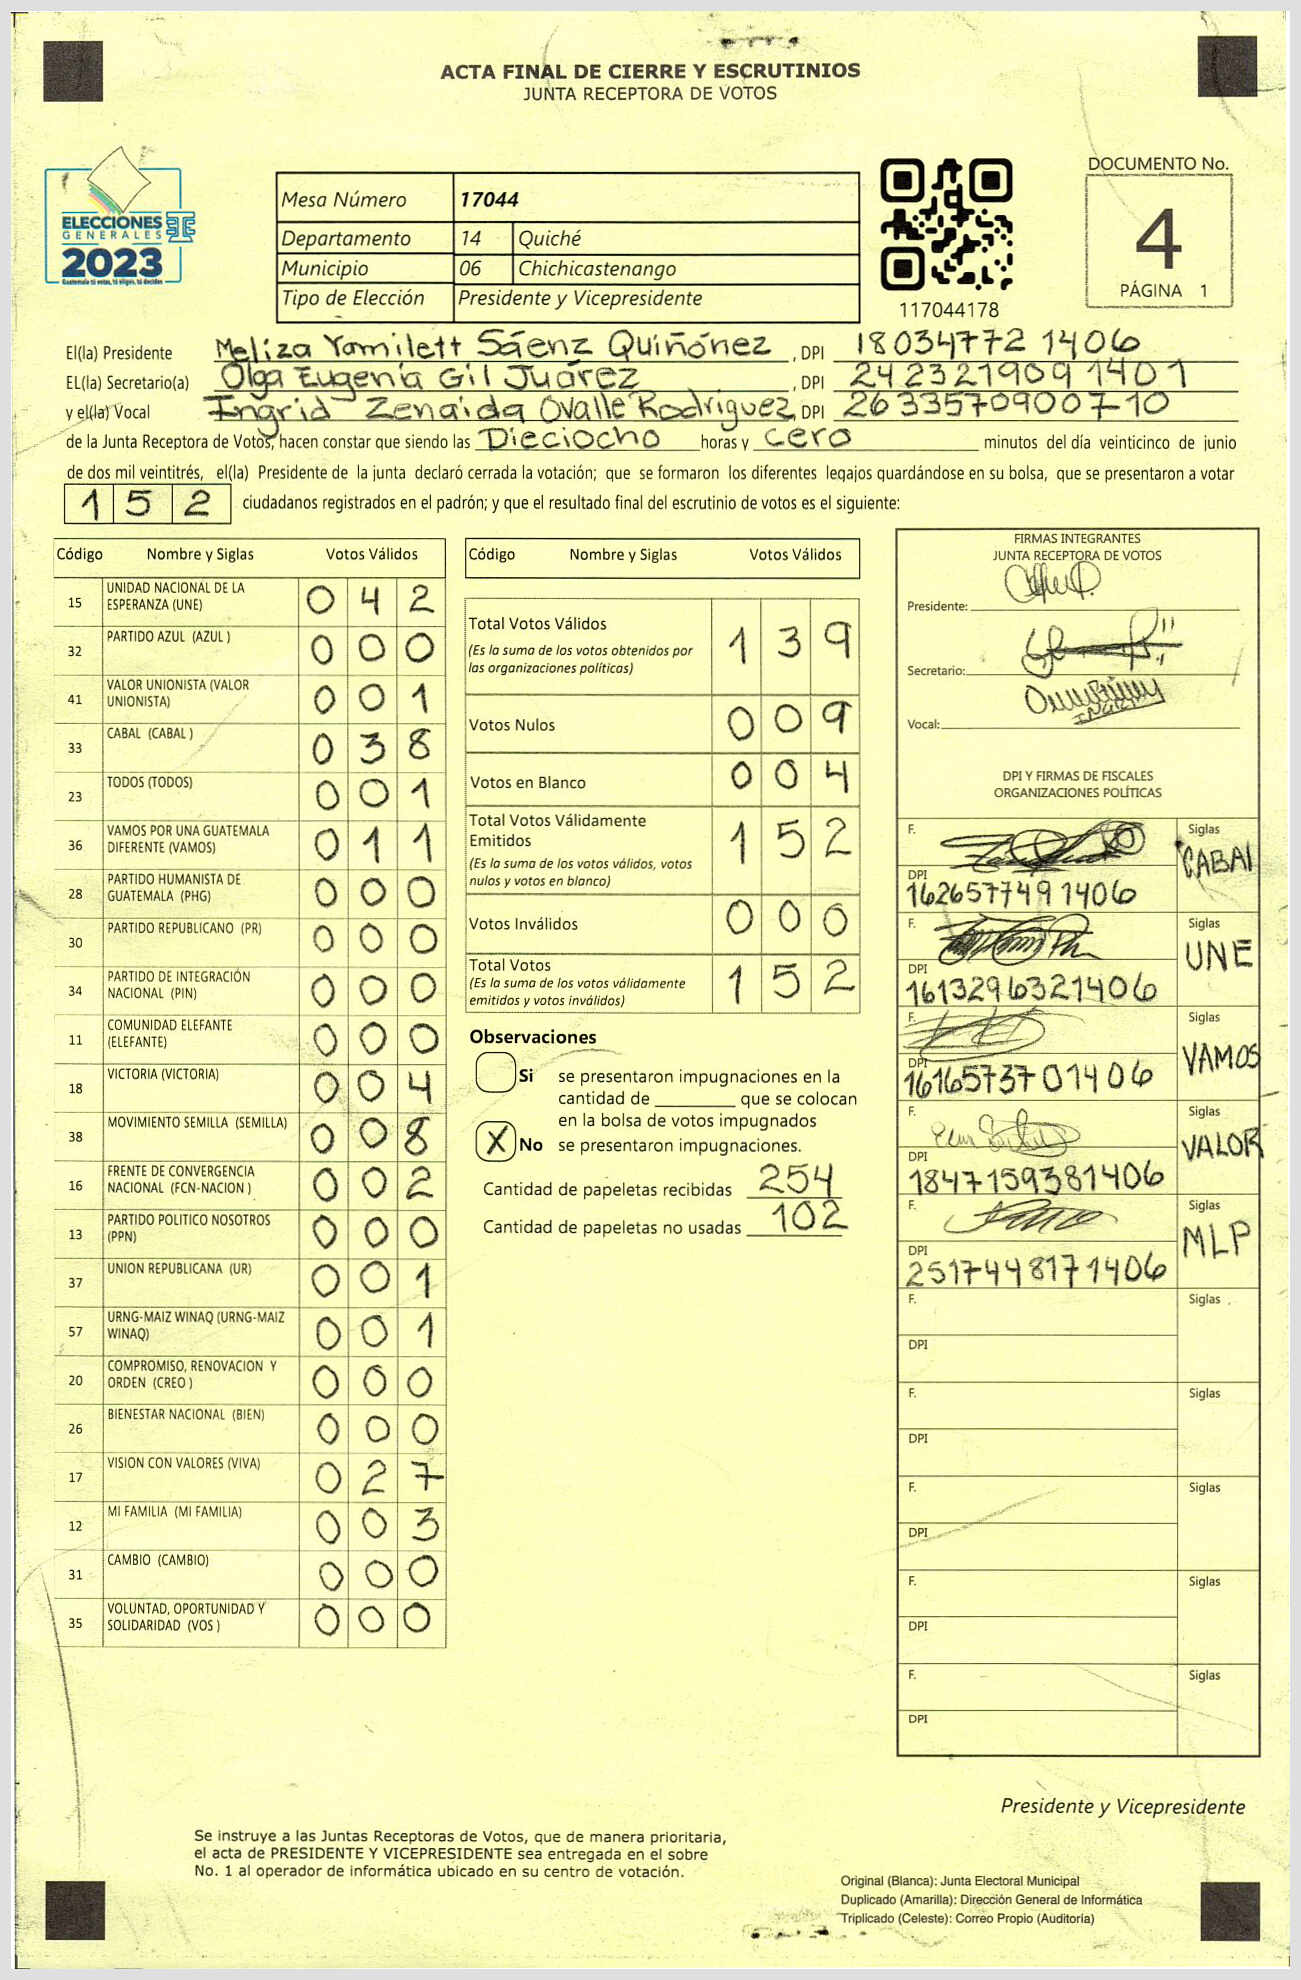 ACTA FINAL DE CIERRE Y ESCRUTINIOS
JUNTA RECEPTORA DE VOTOS
ELECCIONES
GENERALES
2023
Guatemala tú votas, tú eliges, tú decides
Mesa Número 17044
Departamento 14 Quiché
Municipio 06 Chichicastenango
Tipo de Elección Presidente y Vicepresidente
117044178
DOCUMENTO No.
4
PÁGINA 1
El(la) Presidente Meliza Yamilett Sáenz Quiñónez , DPI 18034772 1406
EL(la) Secretario(a) Olga Eugenia Gil Juárez , DPI 242321909 1401
y el(la) Vocal Ingrid Zenaida Ovalle Rodríguez , DPI 2633570900710
de la Junta Receptora de Votos, hacen constar que siendo las Dieciocho horas y cero minutos del día veinticinco de junio
de dos mil veintitrés, el(la) Presidente de la junta declaró cerrada la votación; que se formaron los diferentes legajos quardándose en su bolsa, que se presentaron a votar
152 ciudadanos registrados en el padrón; y que el resultado final del escrutinio de votos es el siguiente:
Código Nombre y Siglas Votos Válidos
15 UNIDAD NACIONAL DE LA ESPERANZA (UNE) 042
32 PARTIDO AZUL (AZUL ) 000
41 VALOR UNIONISTA (VALOR UNIONISTA) 001
33 CABAL (CABAL ) 038
23 TODOS (TODOS) 001
36 VAMOS POR UNA GUATEMALA DIFERENTE (VAMOS) 011
28 PARTIDO HUMANISTA DE GUATEMALA (PHG) 000
30 PARTIDO REPUBLICANO (PR) 000
34 PARTIDO DE INTEGRACIÓN NACIONAL (PIN) 000
11 COMUNIDAD ELEFANTE (ELEFANTE) 000
18 VICTORIA (VICTORIA) 004
38 MOVIMIENTO SEMILLA (SEMILLA) 008
16 FRENTE DE CONVERGENCIA NACIONAL (FCN-NACION ) 002
13 PARTIDO POLITICO NOSOTROS (PPN) 000
37 UNION REPUBLICANA (UR) 001
57 URNG-MAIZ WINAQ (URNG-MAIZ WINAQ) 001
20 COMPROMISO, RENOVACION Y ORDEN (CREO ) 000
26 BIENESTAR NACIONAL (BIEN) 000
17 VISION CON VALORES (VIVA) 027
12 MI FAMILIA (MI FAMILIA) 003
31 CAMBIO (CAMBIO) 000
35 VOLUNTAD, OPORTUNIDAD Y SOLIDARIDAD (VOS ) 000
Código Nombre y Siglas Votos Válidos
Total Votos Válidos 139
(Es la suma de los votos obtenidos por
las organizaciones políticas)
Votos Nulos 009
Votos en Blanco 004
Total Votos Válidamente
Emitidos 152
(Es la suma de los votos válidos, votos
nulos y votos en blanco)
Votos Inválidos 000
Total Votos 152
(Es la suma de los votos válidamente
emitidos y votos inválidos)
Observaciones
Si se presentaron impugnaciones en la
cantidad de ________ que se colocan
en la bolsa de votos impugnados
X No se presentaron impugnaciones.
Cantidad de papeletas recibidas 254
Cantidad de papeletas no usadas 102
FIRMAS INTEGRANTES
JUNTA RECEPTORA DE VOTOS
Presidente:
Secretario:
Vocal:
DPI Y FIRMAS DE FISCALES
ORGANIZACIONES POLÍTICAS
F. Siglas CABAL
DPI 162657749 1406
F. Siglas UNE
DPI 1613296321406
F. Siglas VAMOS
DPI 1616573701406
F. Siglas VALOR
DPI 1847159381406
F. Siglas MLP
DPI 2517448171406
F. Siglas
DPI
F. Siglas
DPI
F. Siglas
DPI
F. Siglas
DPI
F. Siglas
DPI
Presidente y Vicepresidente
Se instruye a las Juntas Receptoras de Votos, que de manera prioritaria,
el acta de PRESIDENTE Y VICEPRESIDENTE sea entregada en el sobre
No. 1 al operador de informática ubicado en su centro de votación.
Original (Blanca): Junta Electoral Municipal
Duplicado (Amarilla): Dirección General de Informática
Triplicado (Celeste): Correo Propio (Auditoría)